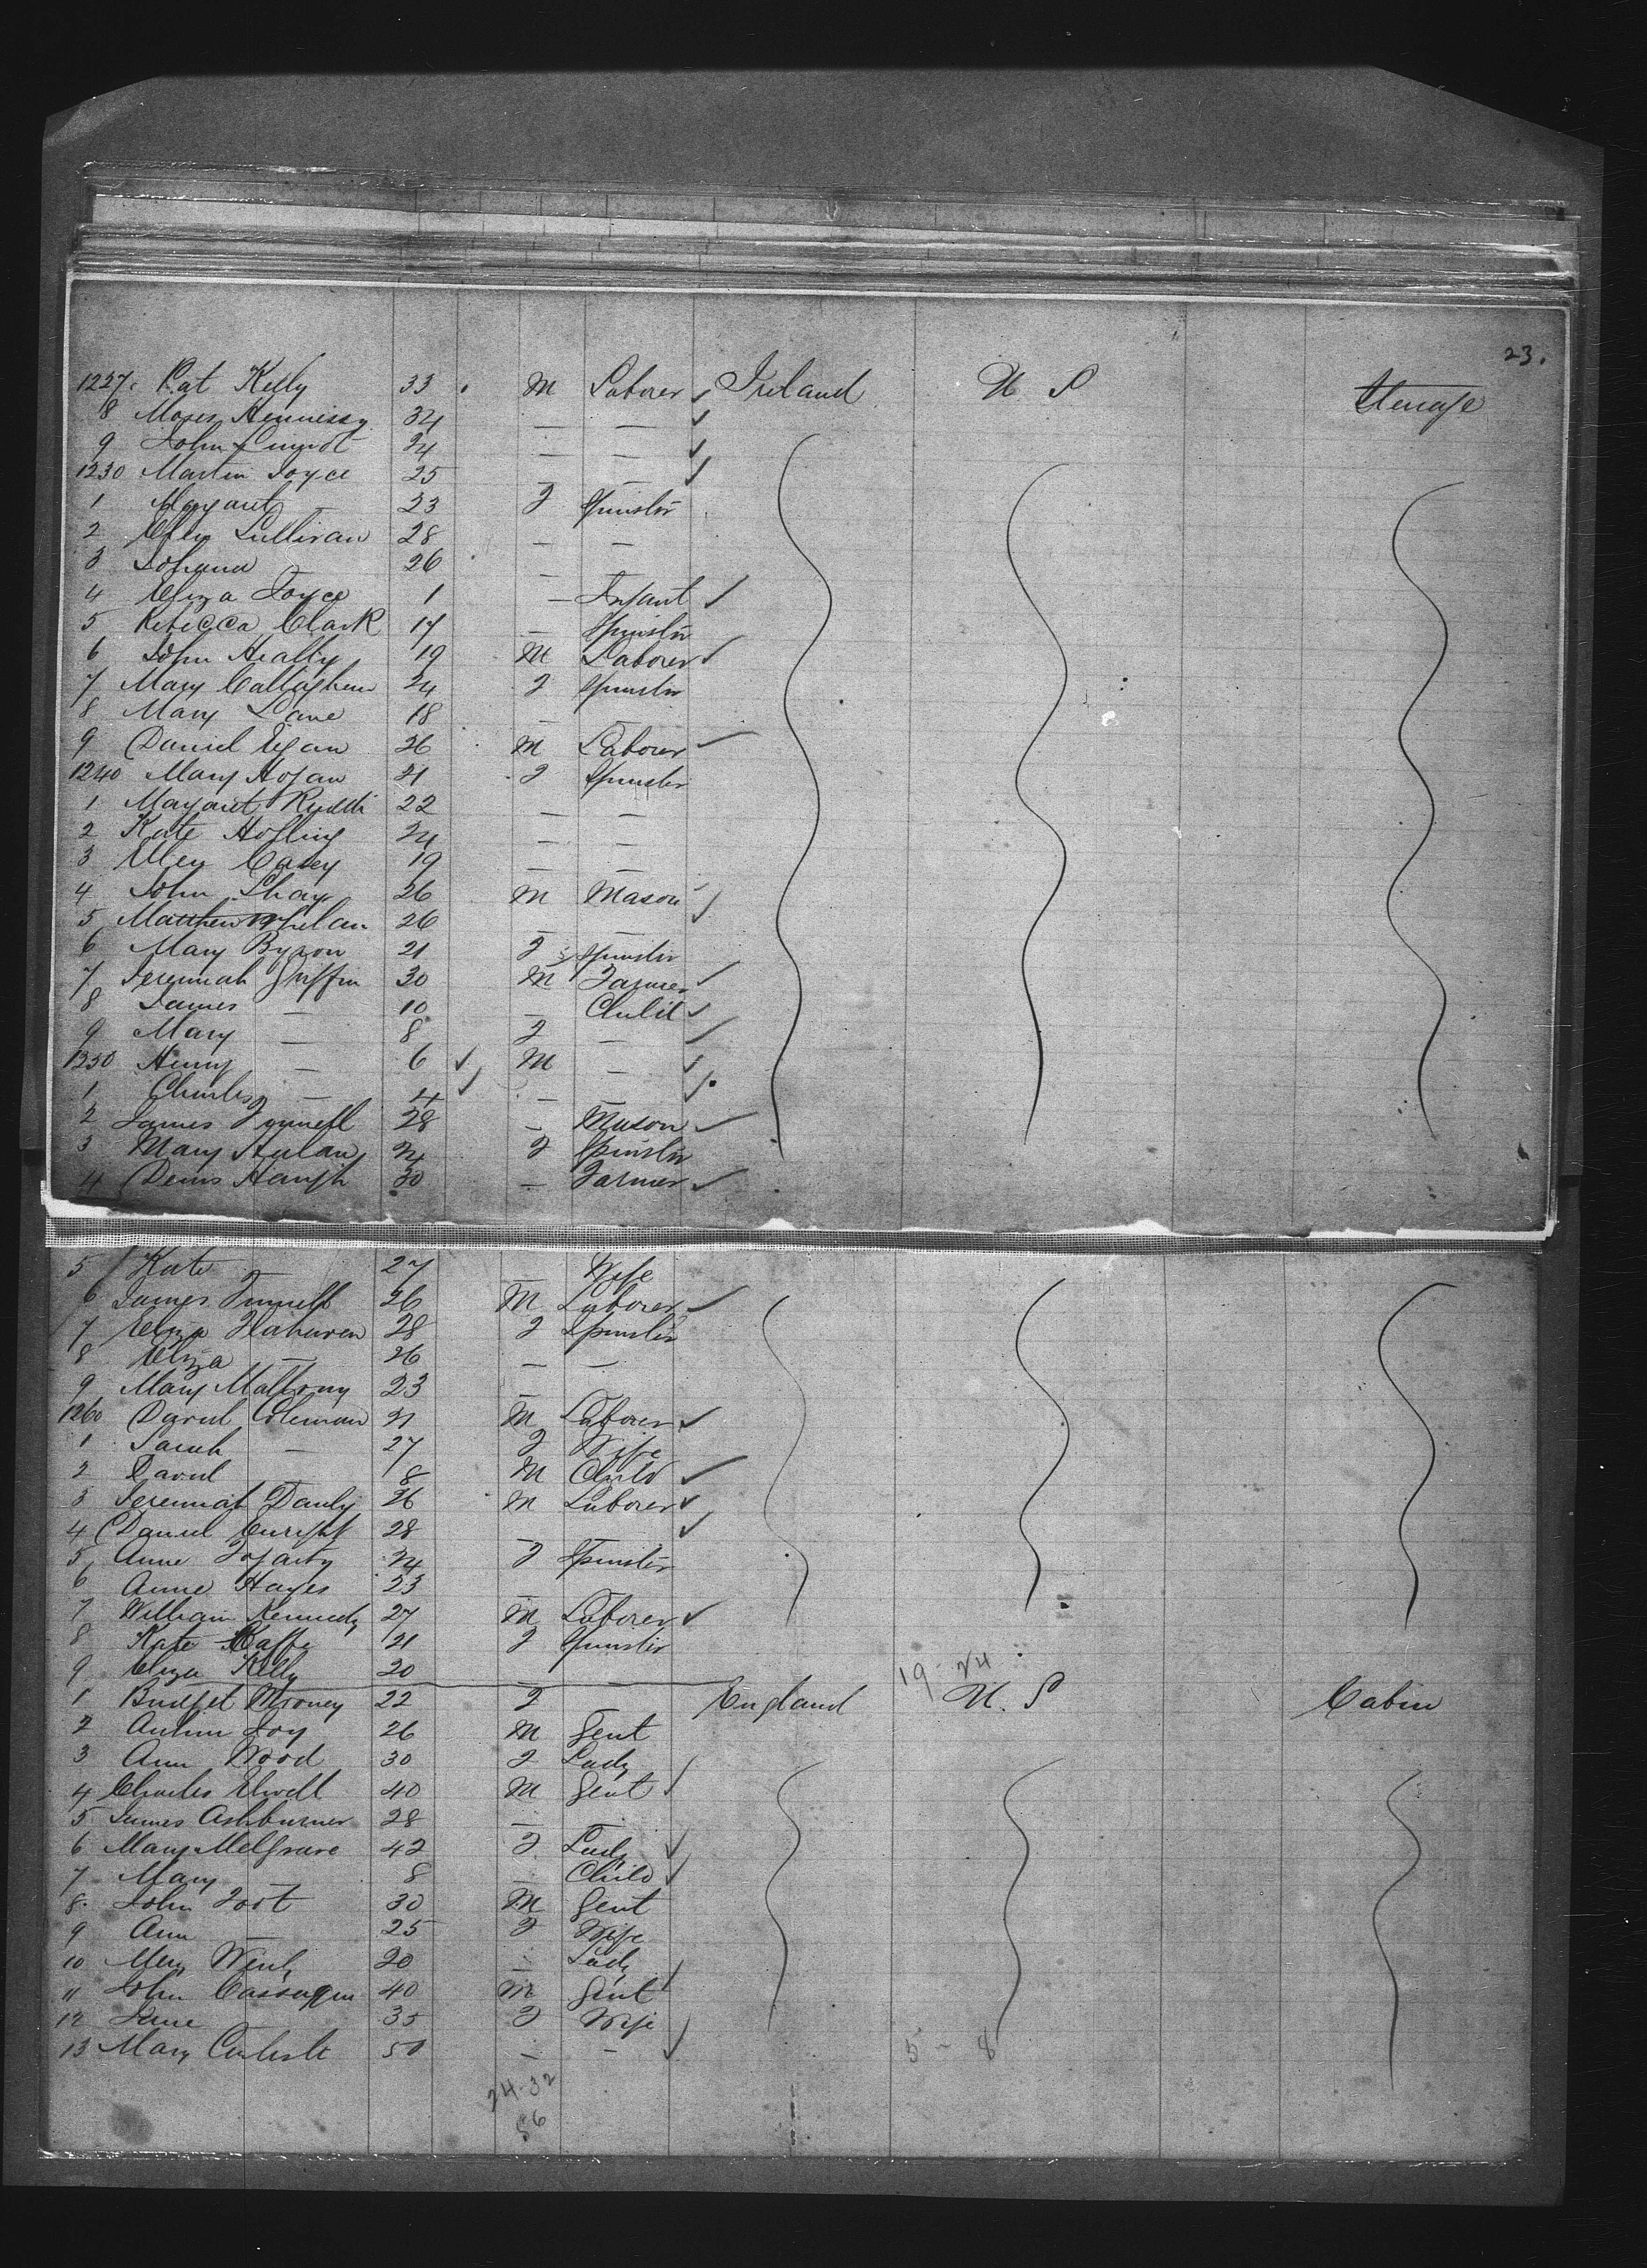 23.
1227. Pat Kelly 33 M Laborer Ireland U S Steerage
8 Moses Hennissy 34 — —
9 John 24 — —
1230 Martin Joyce 25 — —
1 Margaret — 23 F Spinster
2 Ellen Sullivan 28 — —
3 Johana 26 —
4 Eliza Joyce 1 — Infant
5 Rebecca Clark 17 — Spinster
6 John Heally 19 M Laborer
7 Mary Callaghan 24 F Spinster
8 Mary Lane 18 — —
9 Daniel Egan 26 M Laborer
1240 Mary Hogan 21 F Spinster
1 Margaret 22 — —
2 Kate 24 — —
3 Ellen Casey 19 —
4 John Shay 26 M Mason
5 Matthew Whelan 26 — —
6 Mary Byron 21 F Spinster
7 Jeremiah Griffin 30 M Farmer
8 James — 10 — Child
9 Mary — 8 F —
1250 Henry — 6 M —
1 Charles — 4 — —
2 James 28 — Mason
3 Mary 24 F Spinster
4 Denis Haugh 30 — Farmer
5 Kate — 27 — Wife
6 James 26 M Laborer
7 Eliza 28 F Spinster
8 Eliza — 26 — —
9 Mary Mallony 23 —
1260 David Coleman 31 M Laborer
1 Sarah — 27 F Wife
2 David 8 M Child
3 Jeremiah 26 M Laborer
4 Daniel Enright 28
5 Anne Fogarty 24 F Spinster
6 Anne Hayes 23
7 William Kennedy 27 M Laborer
8 Kate 21 F Spinster
9 Eliza Kelly 20 — —
19 24
1 Bridget Mooney 22 F England U. S Cabin
2 Joy 26 M Gent
3 Ann Wood 30 F Lady
4 Charles Elwell 40 M Gent
5 James Ashburner 28 —
6 Mary 42 F Lady
7 Mary — 8 — Child
8. John Foot 30 M Gent
9 Ann — 25 F Wife
10 20 — Lady
11 John 40 M Gent
12 Jane 35 F Wife
13 Mary 50 — —
5 - 8
24-32
56